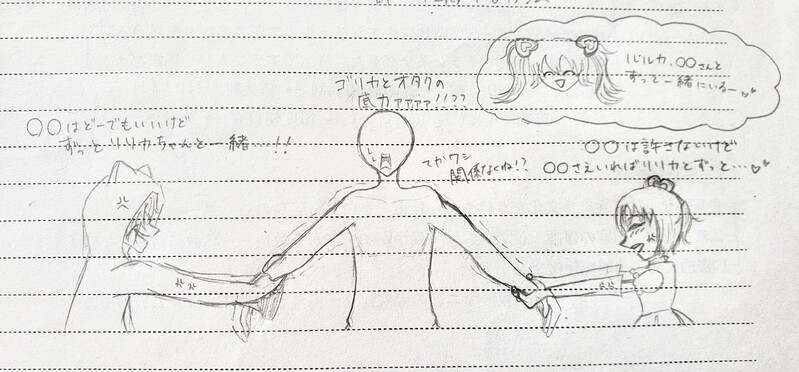 ルルカ、〇〇さんと
ずっと一緒にいるー
ゴリカとオタクの
底力ァァァァ!!??
〇〇はどーでもいいけど
ずっとリリカちゃんと一緒…!!
てかワシ
関係なくね!?
〇〇は許さないけど
〇〇さえいればリリカとずっと…